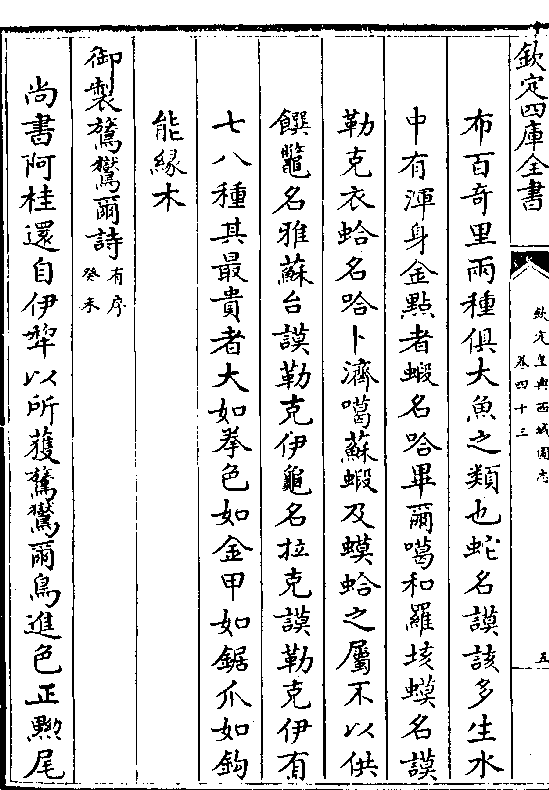 欽定四庫全書
欽定皇輿西域圖志
卷四十三
五
布百奇里兩種俱大魚之類也蛇名謨該多生水
中有渾身金點者蝦名哈畢爾噶和羅垓蟆名謨
勒克衣蛤名哈卜濟噶蘇蝦及蟆蛤之屬不以供
饌鼈名雅蘇台謨勒克伊龜名拉克謨勒克伊有
七八種其最貴者大如拳色如金甲如鋸爪如鈎
能緣木
御製鶖鷔爾詩
有序
癸未
尚書阿桂還自伊犂以所獲鶖鷔爾鳥進色正黝尾